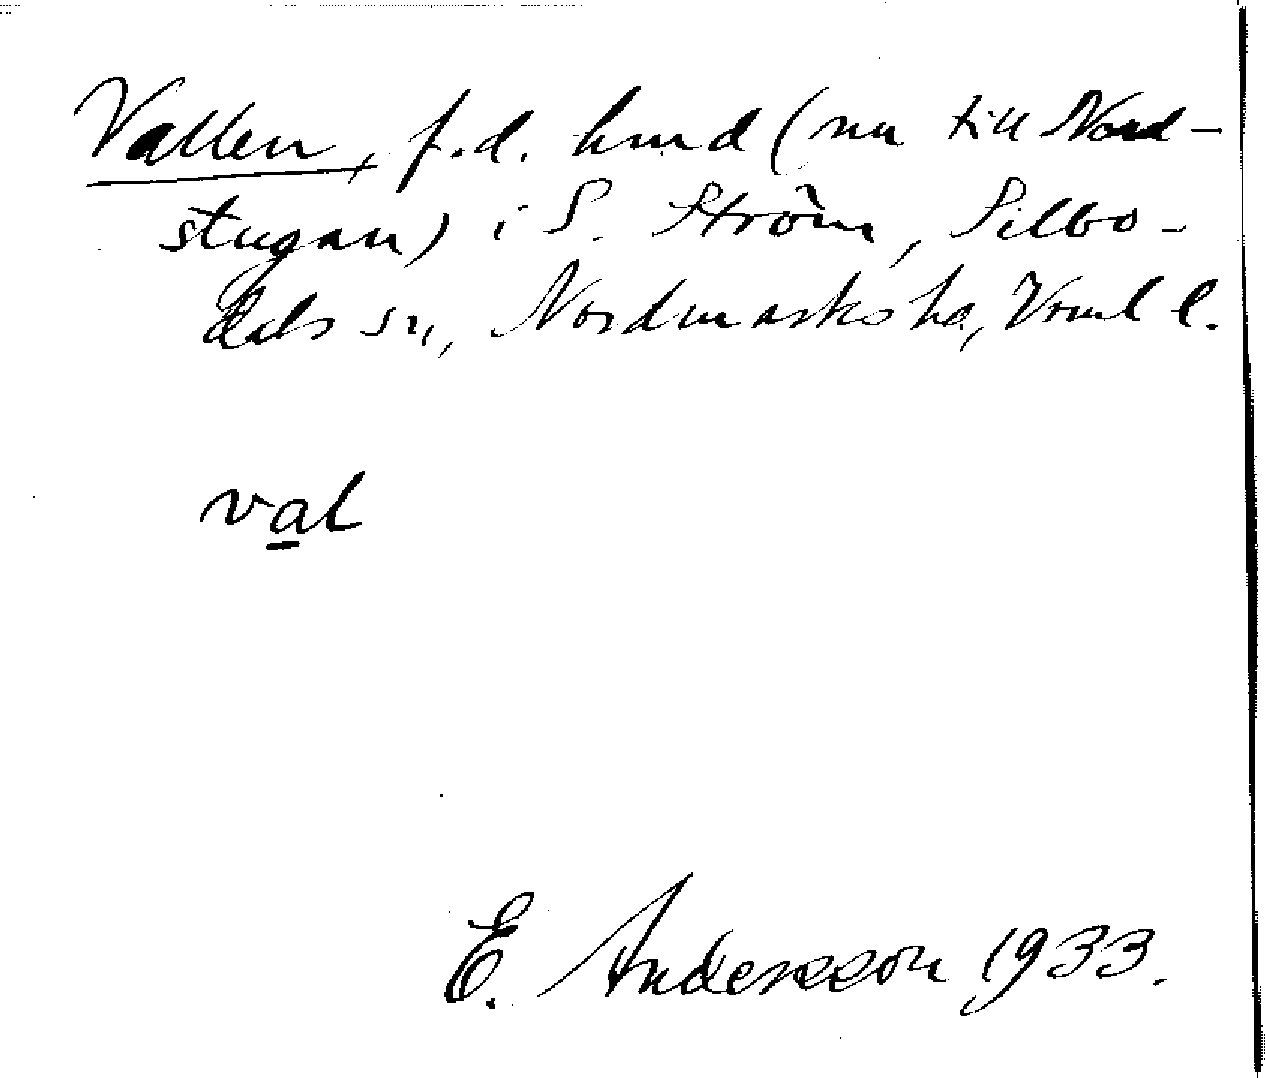 Vallen, f.d. hmd (nu till Nord-
stugan) i S. Ström, Silbo-
dals sn, Nordmarks hd, Vrml l.
val
E. Andersson 1933.